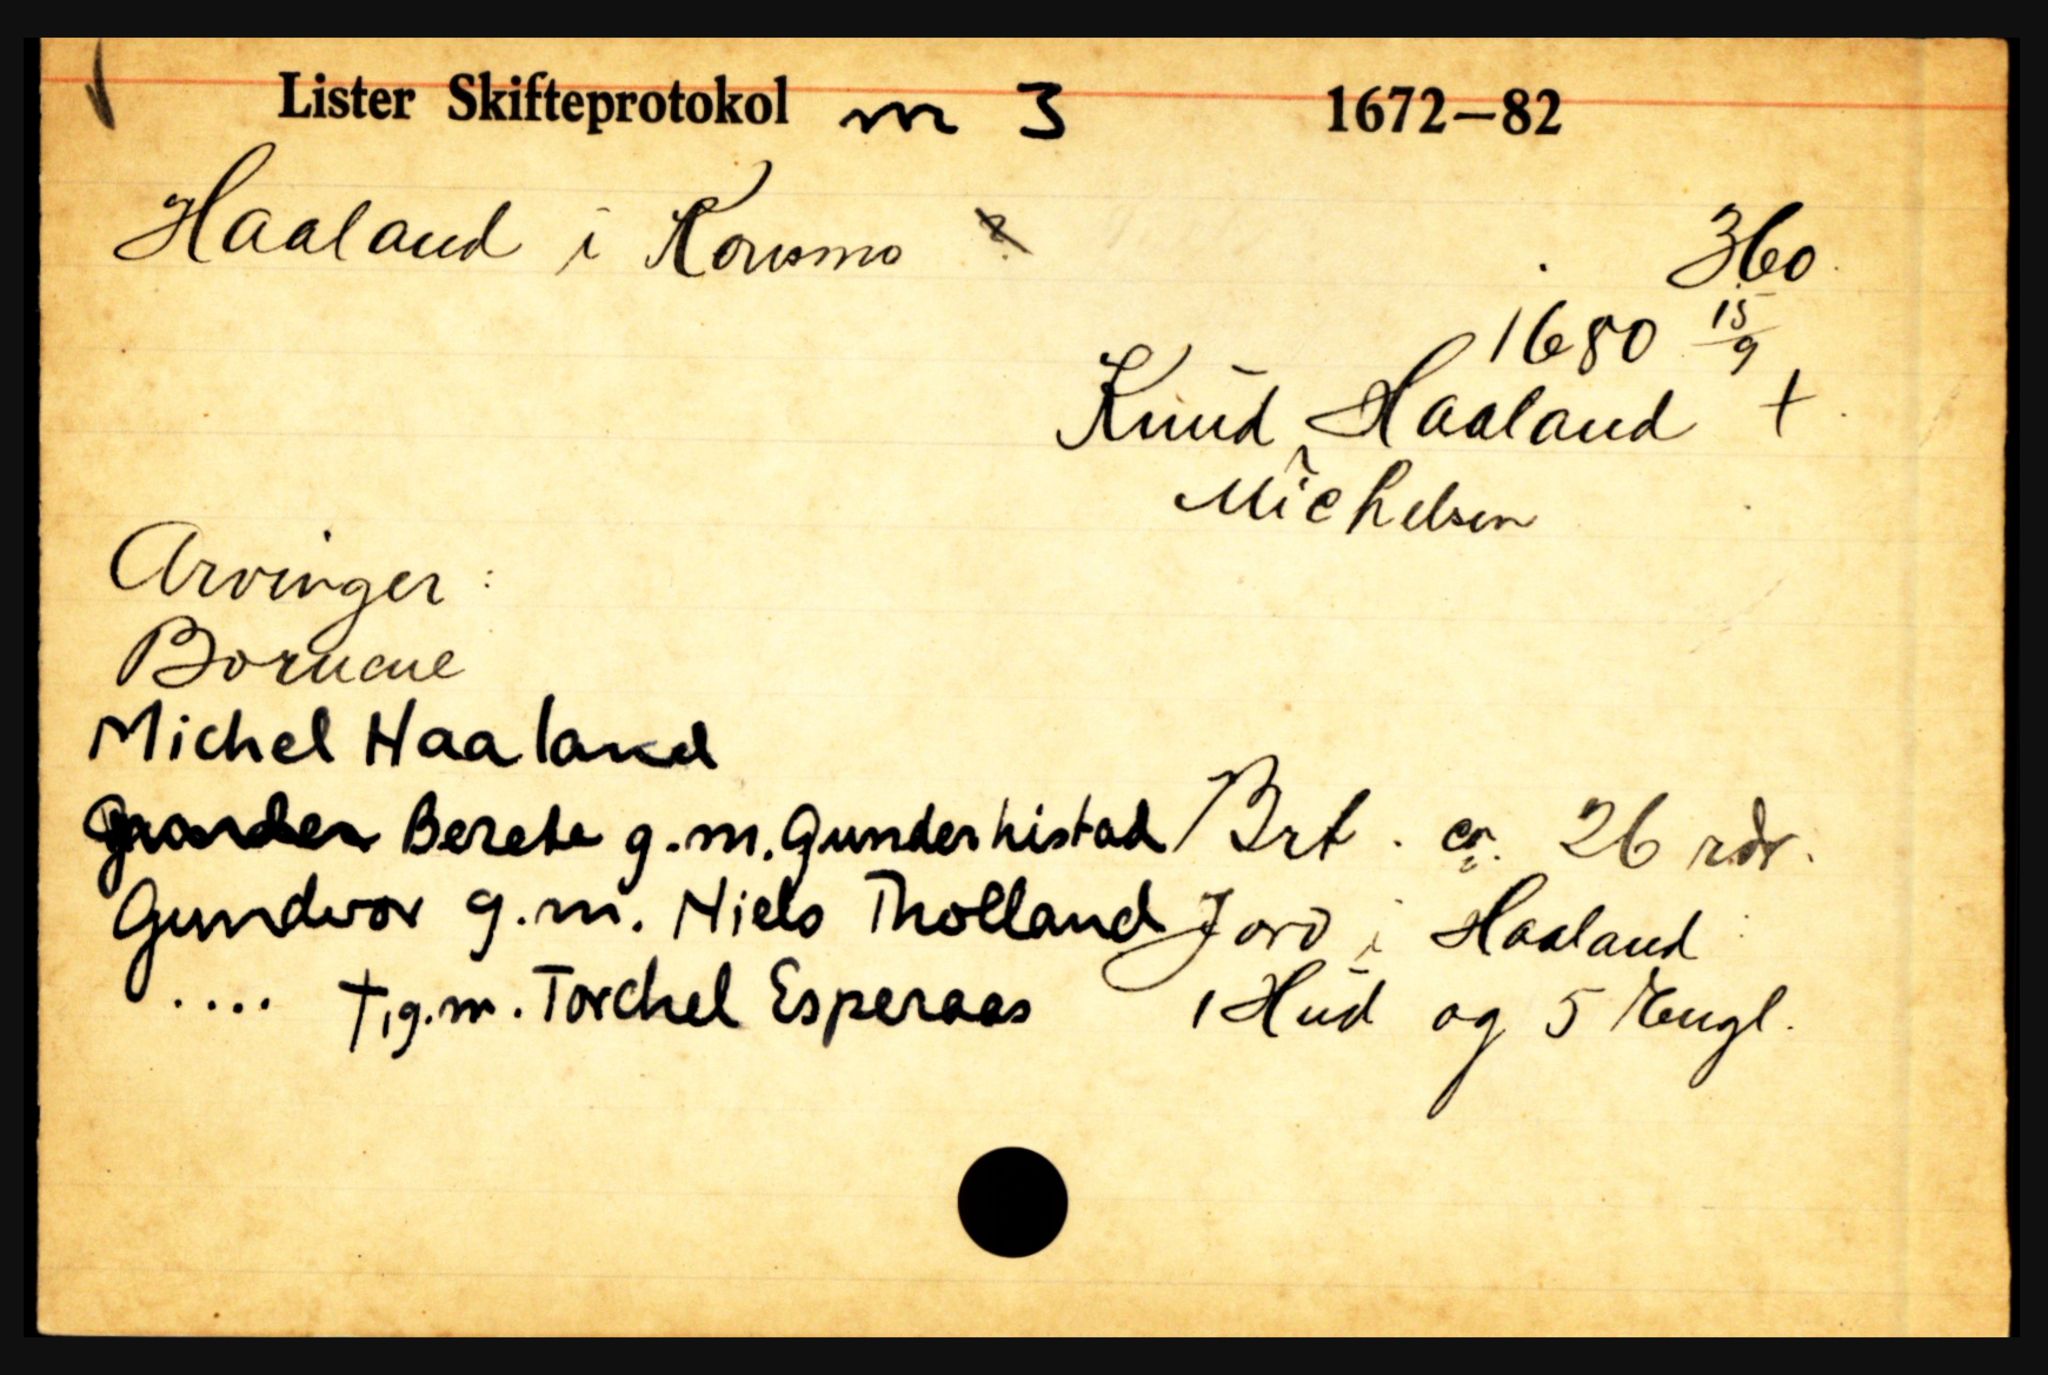 Lister Skifteprotokol nr 3 1672–82
Haaland i Konsmo
360
1680 15/9
Knud Haaland +
Michelsen
Arvinger:
Børnene
Michel Haaland
Berete g.m. Gunder histad
Brt. ca. 26 rdr.
Gundvor g.m. Niels Tholland
Jord i Haaland:
.... †, g.m. Torchel Esperaas
1 Hud og 5 Engl.